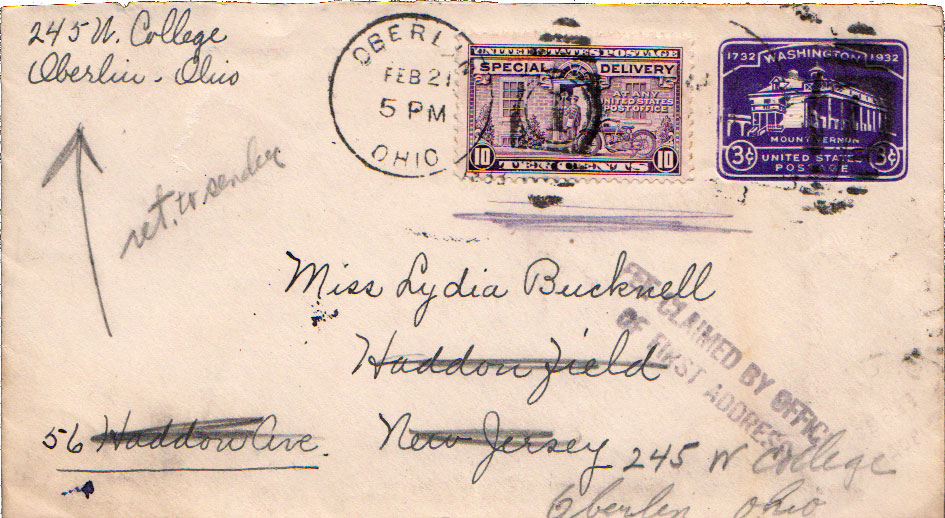 245 W. College
Oberlin - Ohio
OBERLIN
FEB 21
5 PM
OHIO
UNITED STATES POSTAGE
SPECIAL DELIVERY
AT ANY
UNITED STATES
POST OFFICE
10 TEN CENTS 10
1732 WASHINGTON 1932
MOUNT VERNON
3¢ UNITED STATES 3¢
POSTAGE
ret. to sender
Miss Lydia Bucknell
Haddonfield
56 Haddon Ave.
New Jersey
FEE CLAIMED BY OFFICE
OF FIRST ADDRESS
245 W College
Oberlin Ohio